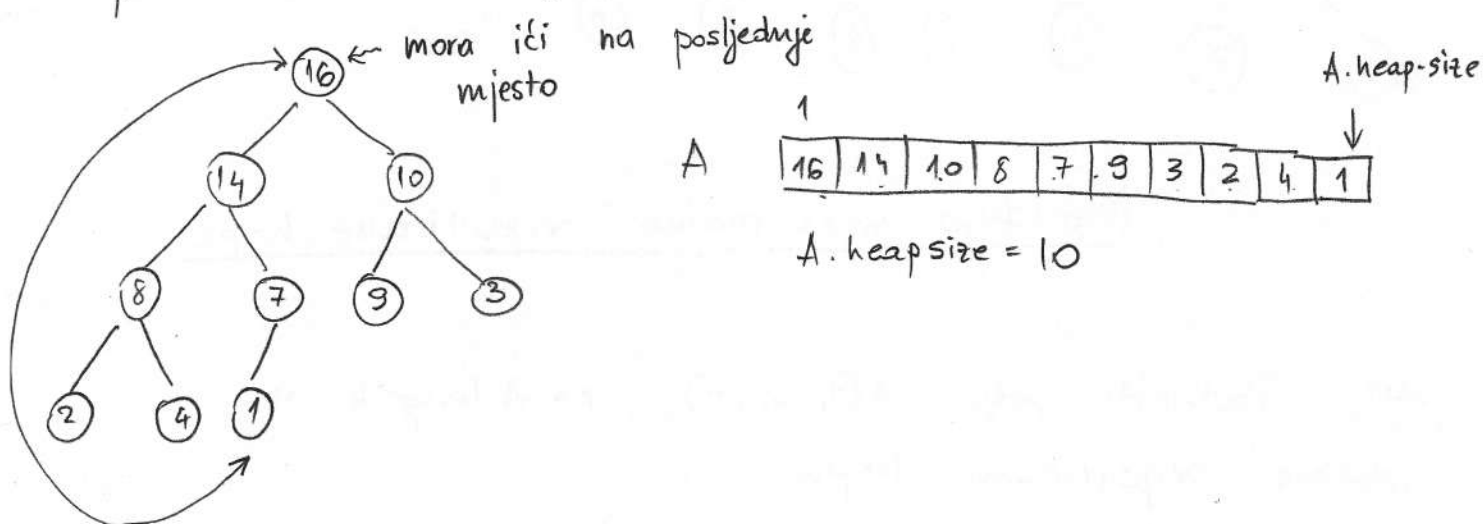 16 ← mora ići na posljednje
mjesto
14 10
8 7 9 3
2 4 1
A.heap-size
1
A 16 14 10 8 7 9 3 2 4 1
A.heapsize = 10